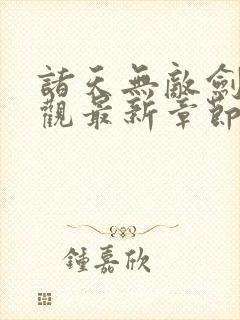 諸天無敵劍
觀最新章節
鍾嘉欣